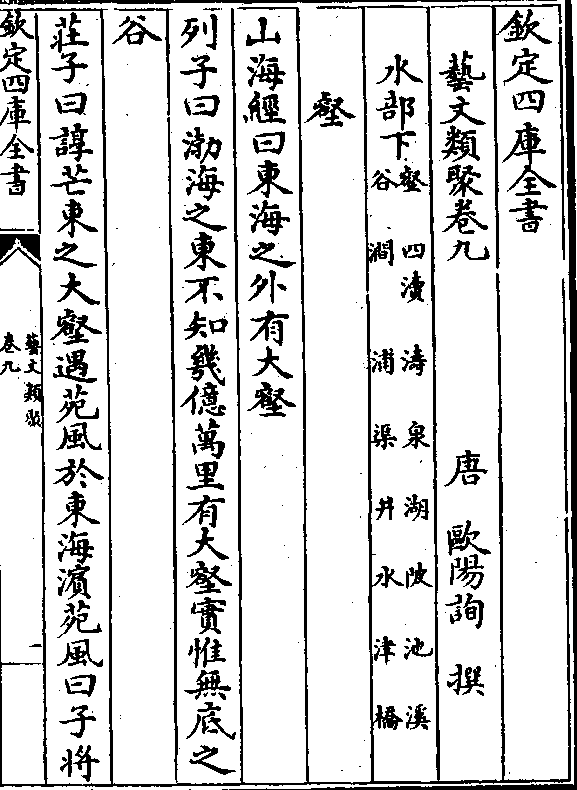 欽定四庫全書
藝文類聚卷九
唐 歐陽詢 撰
水部下 壑 四瀆 濤 泉 湖 陂 池 溪
谷 澗 浦 渠 井 水 津 橋
壑
山海經曰東海之外有大壑
列子曰渤海之東不知幾億萬里有大壑實惟無底之
谷
莊子曰諄芒東之大壑遇苑風於東海濱苑風曰子將
欽定四庫全書
藝文類聚
卷九
一